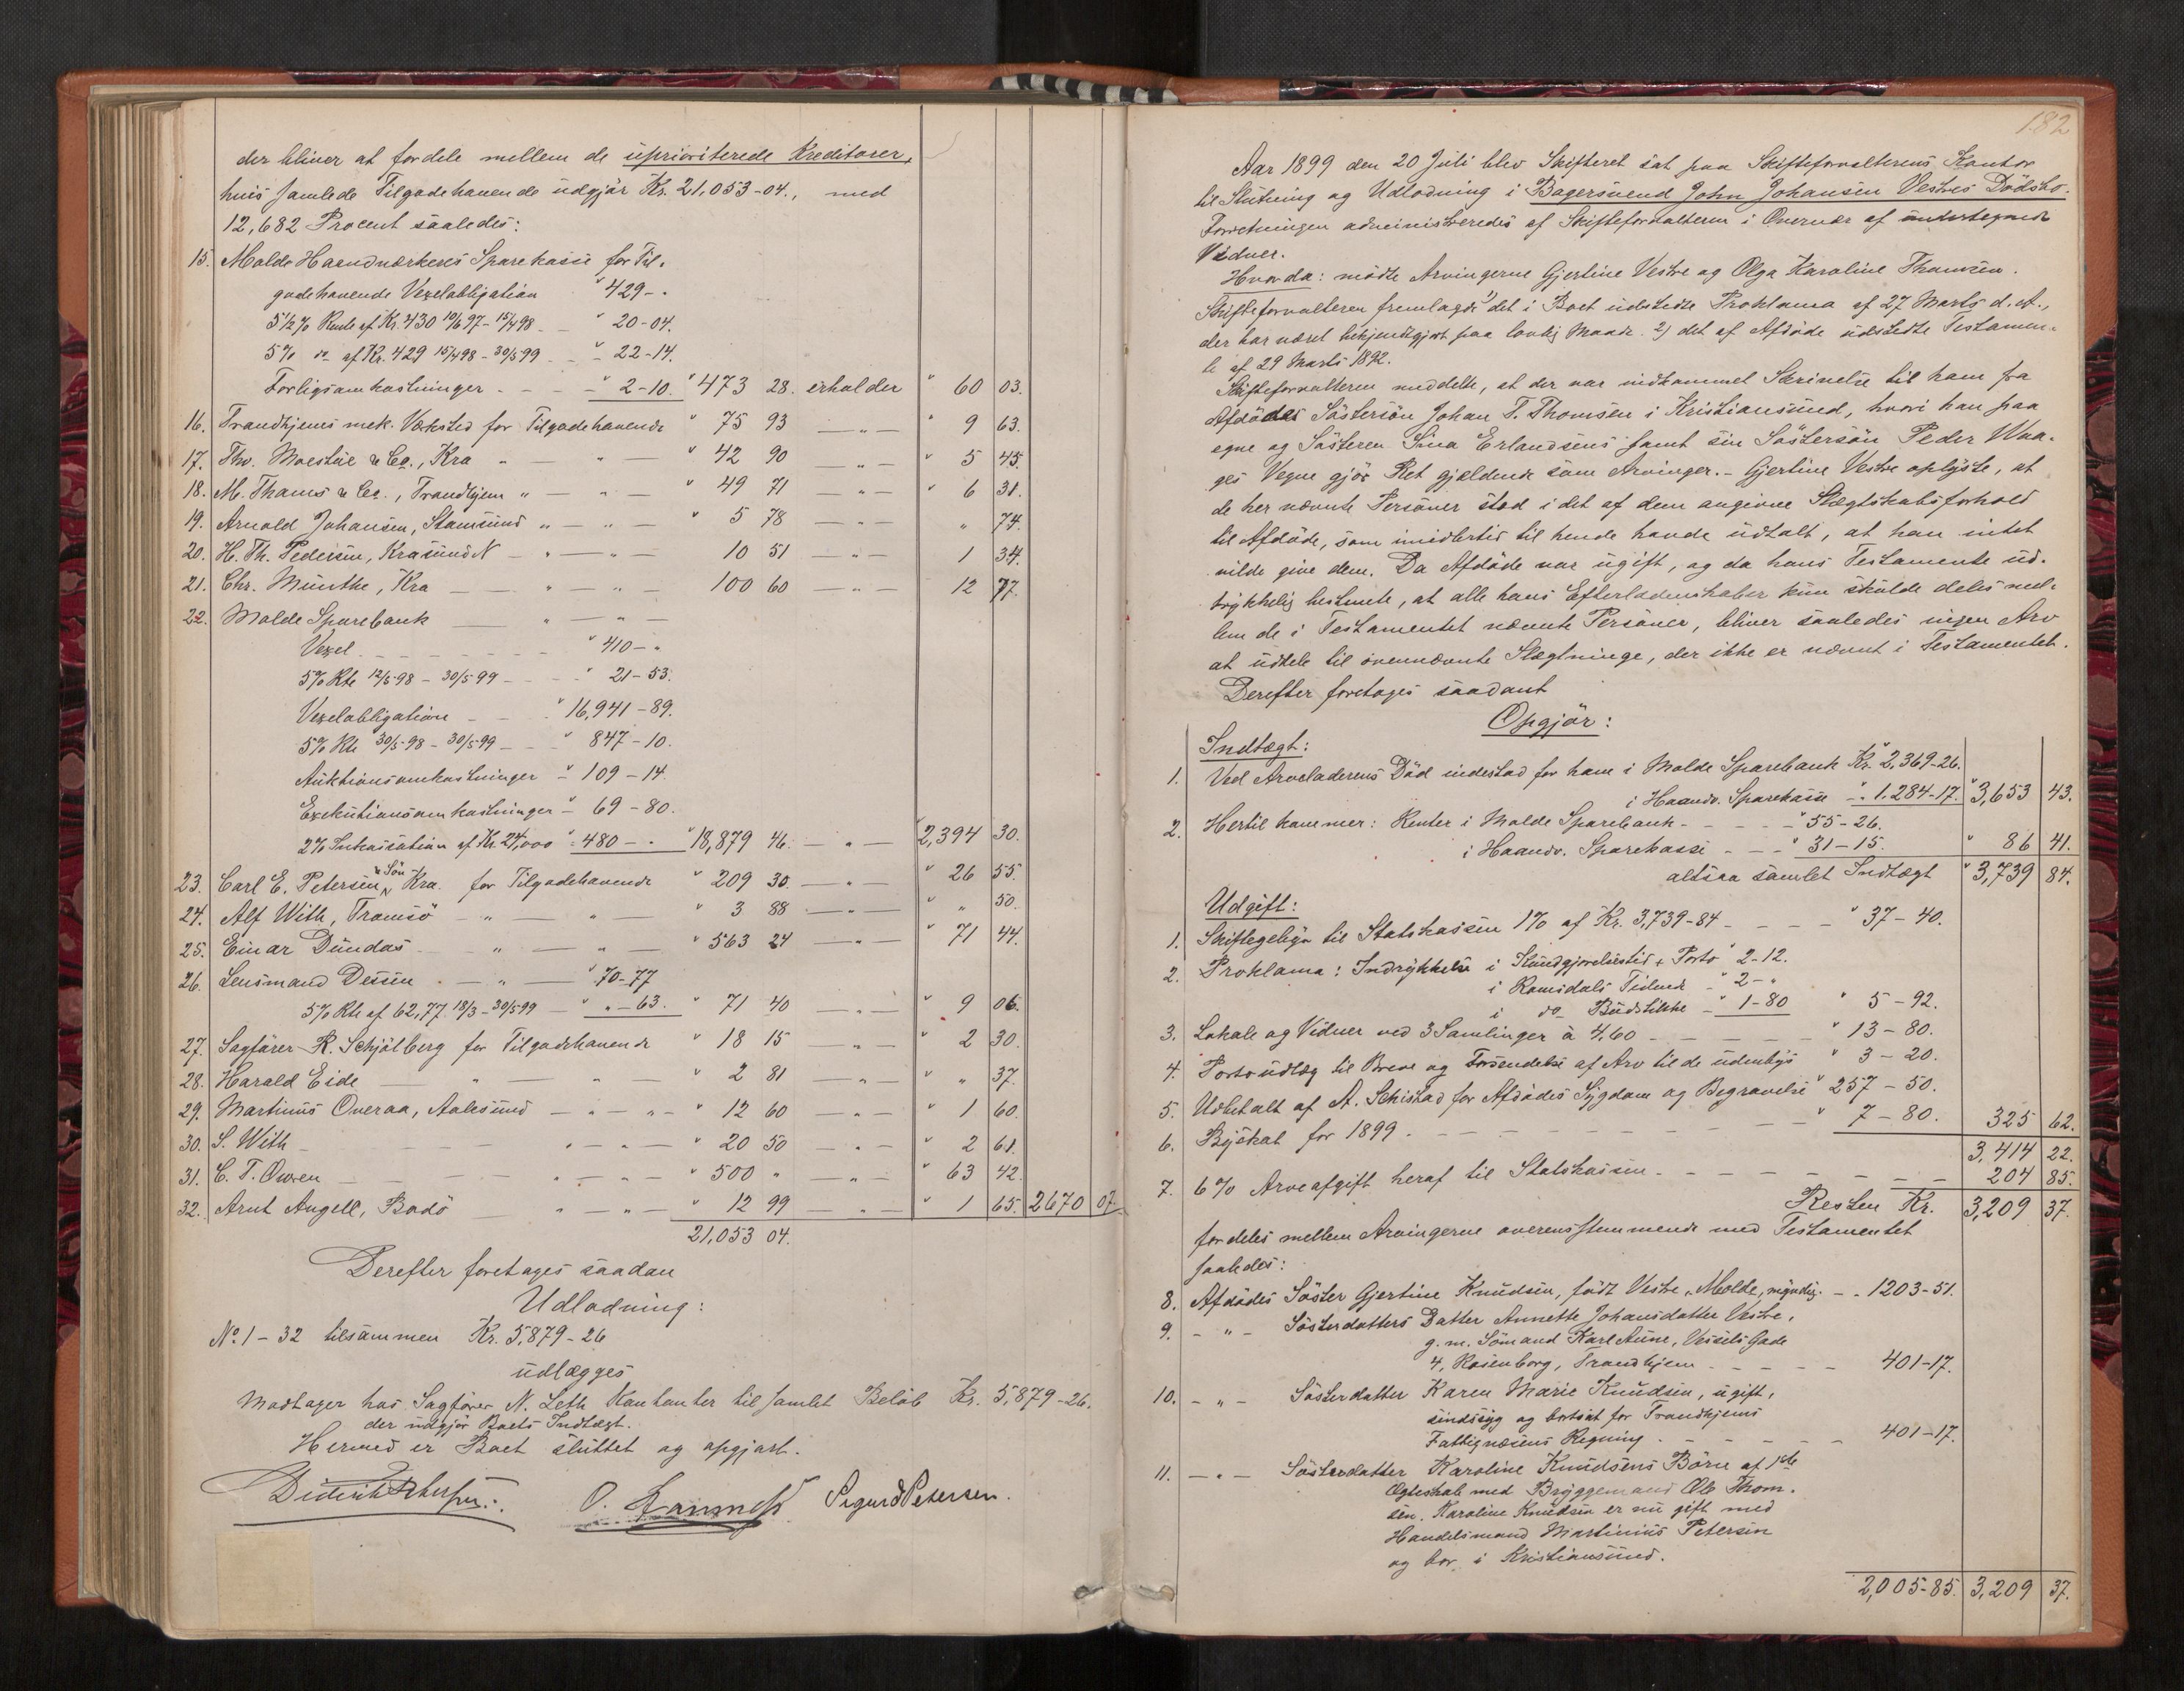 der bliver at fordele mellem de upriviterede Kreditorer,
hvis samlede Tilgodehavende udgjør Kr. 21,053-04., med
12,682 Procent saaledes:
15. Molde Haandværkeres Sparekasse for Til-
godehavende Vexelobligation " 429-"
5 1/2 % Rente af Kr. 430 10/6 97 - 15/4 98 - " 20-04.
5% do af Kr. 429 15/4 98 - 30/5 99 - " 22-14.
Forligsomkostninger - - " 2-10. " 473 28. erholder " 60 03.
16. Trondhjems mek. Værksted for Tilgodehavende " 75 93 — " — " 9 63.
17. Thv. Moestue & Co., Kra " — " — " 42 90 — " — " 5 45.
18. M. Thams & Co., Trondhjem " — " — " 49 71 — " — " 6 31.
19. Arnold Johansen, Stamsund " — " — " 5 78 — " — " 74.
20. H. Th. Pedersen, KrasundN — " — " — 10 51 — " — 1 34.
21. Chr. Munthe, Kra — " — " — 100 60 — " — 12 77.
22. Molde Sparebank — " — " —
Vexel - - - " 410-"
5% Rte 12/5 98 - 30/5 99 - - " 21-53.
Vexelobligation - - " 16,941-89.
5% Rte 30/5 98 - 30/5 99 - - " 847-10.
Auktionsomkostninger - " 109-14.
Exekutionsomkostninger - " 69-80.
2% Inkassation af Kr. 24,000 " 480-" " 18,879 46. — " — " 2,394 30.
23. Carl E. Petersen & Søn Kra. for Tilgodehavende " 209 30. — " — " 26 55.
24. Alf With, Tromsø — " — " — " 3 88 — " — " " 50.
25. Einar Dundas — " — " — " 563 24 — " — " 71 44.
26. Lensmand Dessen - — " — " 70-77
5% Rte af 62,77 18/3 - 30/5 99 — " "-63. " 71 40 — " — " 9 06.
27. Sagfører R. Schjølberg for Tilgodehavende " 18 15 — " — " 2 30.
28. Harald Eide — " — " — " 2 81 — " — " " 37.
29. Martinus Overaa, Aalesund — " — " — " 12 60 — " — " 1 60.
30. S. With — " — " — " 20 50 — " — " 2 61.
31. C. T. Owren — " — " — " 500 " — " — " 63 42.
32. Arnt Angell, Bodø — " — " — " 12 99 — " — " 1 65. 2670 07.
21,053 04.
Derefter foretages saadan
Udlodning:
No. 1 - 32 tilsammen Kr. 5,879-26
udlægges
Modtager hos Sagfører N. Leth Kontanter til samlet Beløb Kr. 5,879-26.
der udgjør Boets Indtægt.
Hermed er Boet sluttet og opgjort.
Sigurd Petersen.
182
Aar 1899 den 20 Juli blev Skifteret sat paa Skifteforvalterens Kontor
til Slutning og Udlodning i Bagersvend John Johansen Vestres Dødsbo.
Forretningen administreredes af Skifteforvalteren i Overvær af undertegnede
Vidner.
Hvorda: mødte Arvingerne Gjertine Vestre og Olga Karoline Thomsen.
Skifteforvalteren fremlagde 1) det i Boet udstedte Proklama af 27 Marts d. A.,
der har været bekjendtgjort paa lovlig Maade. 2) det af Afdøde udstedte Testamen-
te af 29 Marts 1892.
Skifteforvalteren meddelte, at der var indkommet Skrivelse til ham fra
Afdødes Søstersøn Johan T. Thomsen i Kristiansund, hvori han paa
egne og Søsteren Sina Erlandsens samt sin Søstersøn Peder Waa-
ges Vegne gjør Ret gjældende som Arvinger. - Gjertine Vestre oplyste, at
de her nævnte Personer stod i det af dem angivne Slægtskabsforhold
til Afdøde, som imidlertid til hende havde udtalt, at han intet
vilde give dem. Da Afdøde var ugift, og da hans Testamente ud-
trykkelig bestemte, at alle hans Efterladenskaber kun skulde deles mel-
lem de i Testamentet nævnte Personer, bliver saaledes ingen Arv
at uddele til ovennævnte Slægtninge, der ikke er nævnt i Testamentet.
Derefter foretages saadant
Opgjør:
Indtægt:
1. Ved Arveladerens Død indestod for ham i Molde Sparebank Kr. 2,369-26.
i Haandv. Sparekasse - " 1.284-17. " 3,653 43.
2. Hertil kommer: Renter i Molde Sparebank - - - " 55-26.
i Haandv. Sparekasse - - " 31-15. " 86 41.
altsaa samlet Indtægt " 3,739 84.
Udgift:
1. Skiftegebyr til Statskassen 1% af Kr. 3,739-84 - - - " 37-40.
2. Proklama: Indrykkelse i Kundgjørelsestid. & Porto " 2-12.
i Romsdals Tidende - " 2-"
i do Budstikke - " 1-80 " 5-92.
3. Lokale og Vidner ved 3 Samlinger à 4,60 - - - " 13-80.
4. Portoudlæg til Breve og Forsendelse af Arv til de udenbys " 3-20.
5. Udbetalt af A. Schistad for Afdødes Sygdom og Begravelse " 257-50.
6. Byskat for 1899 - - - " 7-80. 325 62.
3,414 22.
7. 6% Arveafgift heraf til Statskassen - - - 204 85.
Resten Kr. 3,209 37.
fordeles mellem Arvingerne overensstemmende med Testamentet
saaledes:
8. Afdødes Søster Gjertine Knudsen, født Vestre, Molde, myndig. - - 1203-51.
9. - " - Søsterdatters Datter Annette Johansdatter Vestre,
g. m. Sømand Karl Aune, Vessels Gade
4, Rosenborg, Trondhjem - - - 401-17.
10. - " - Søsterdatter Karen Marie Knudsen, ugift,
sindssyg og bortsat for Trondhjems
Fattigvæsens Regning - - - 401-17.
11. - " - Søsterdatter Karoline Knudsens Børn af 1ste
Ægteskab med Bryggemand Ole Thom-
sen. Karoline Knudsen er nu gift med
Handelsmand Martinius Petersen
og bor i Kristiansund.
2,005-85. 3,209 37.